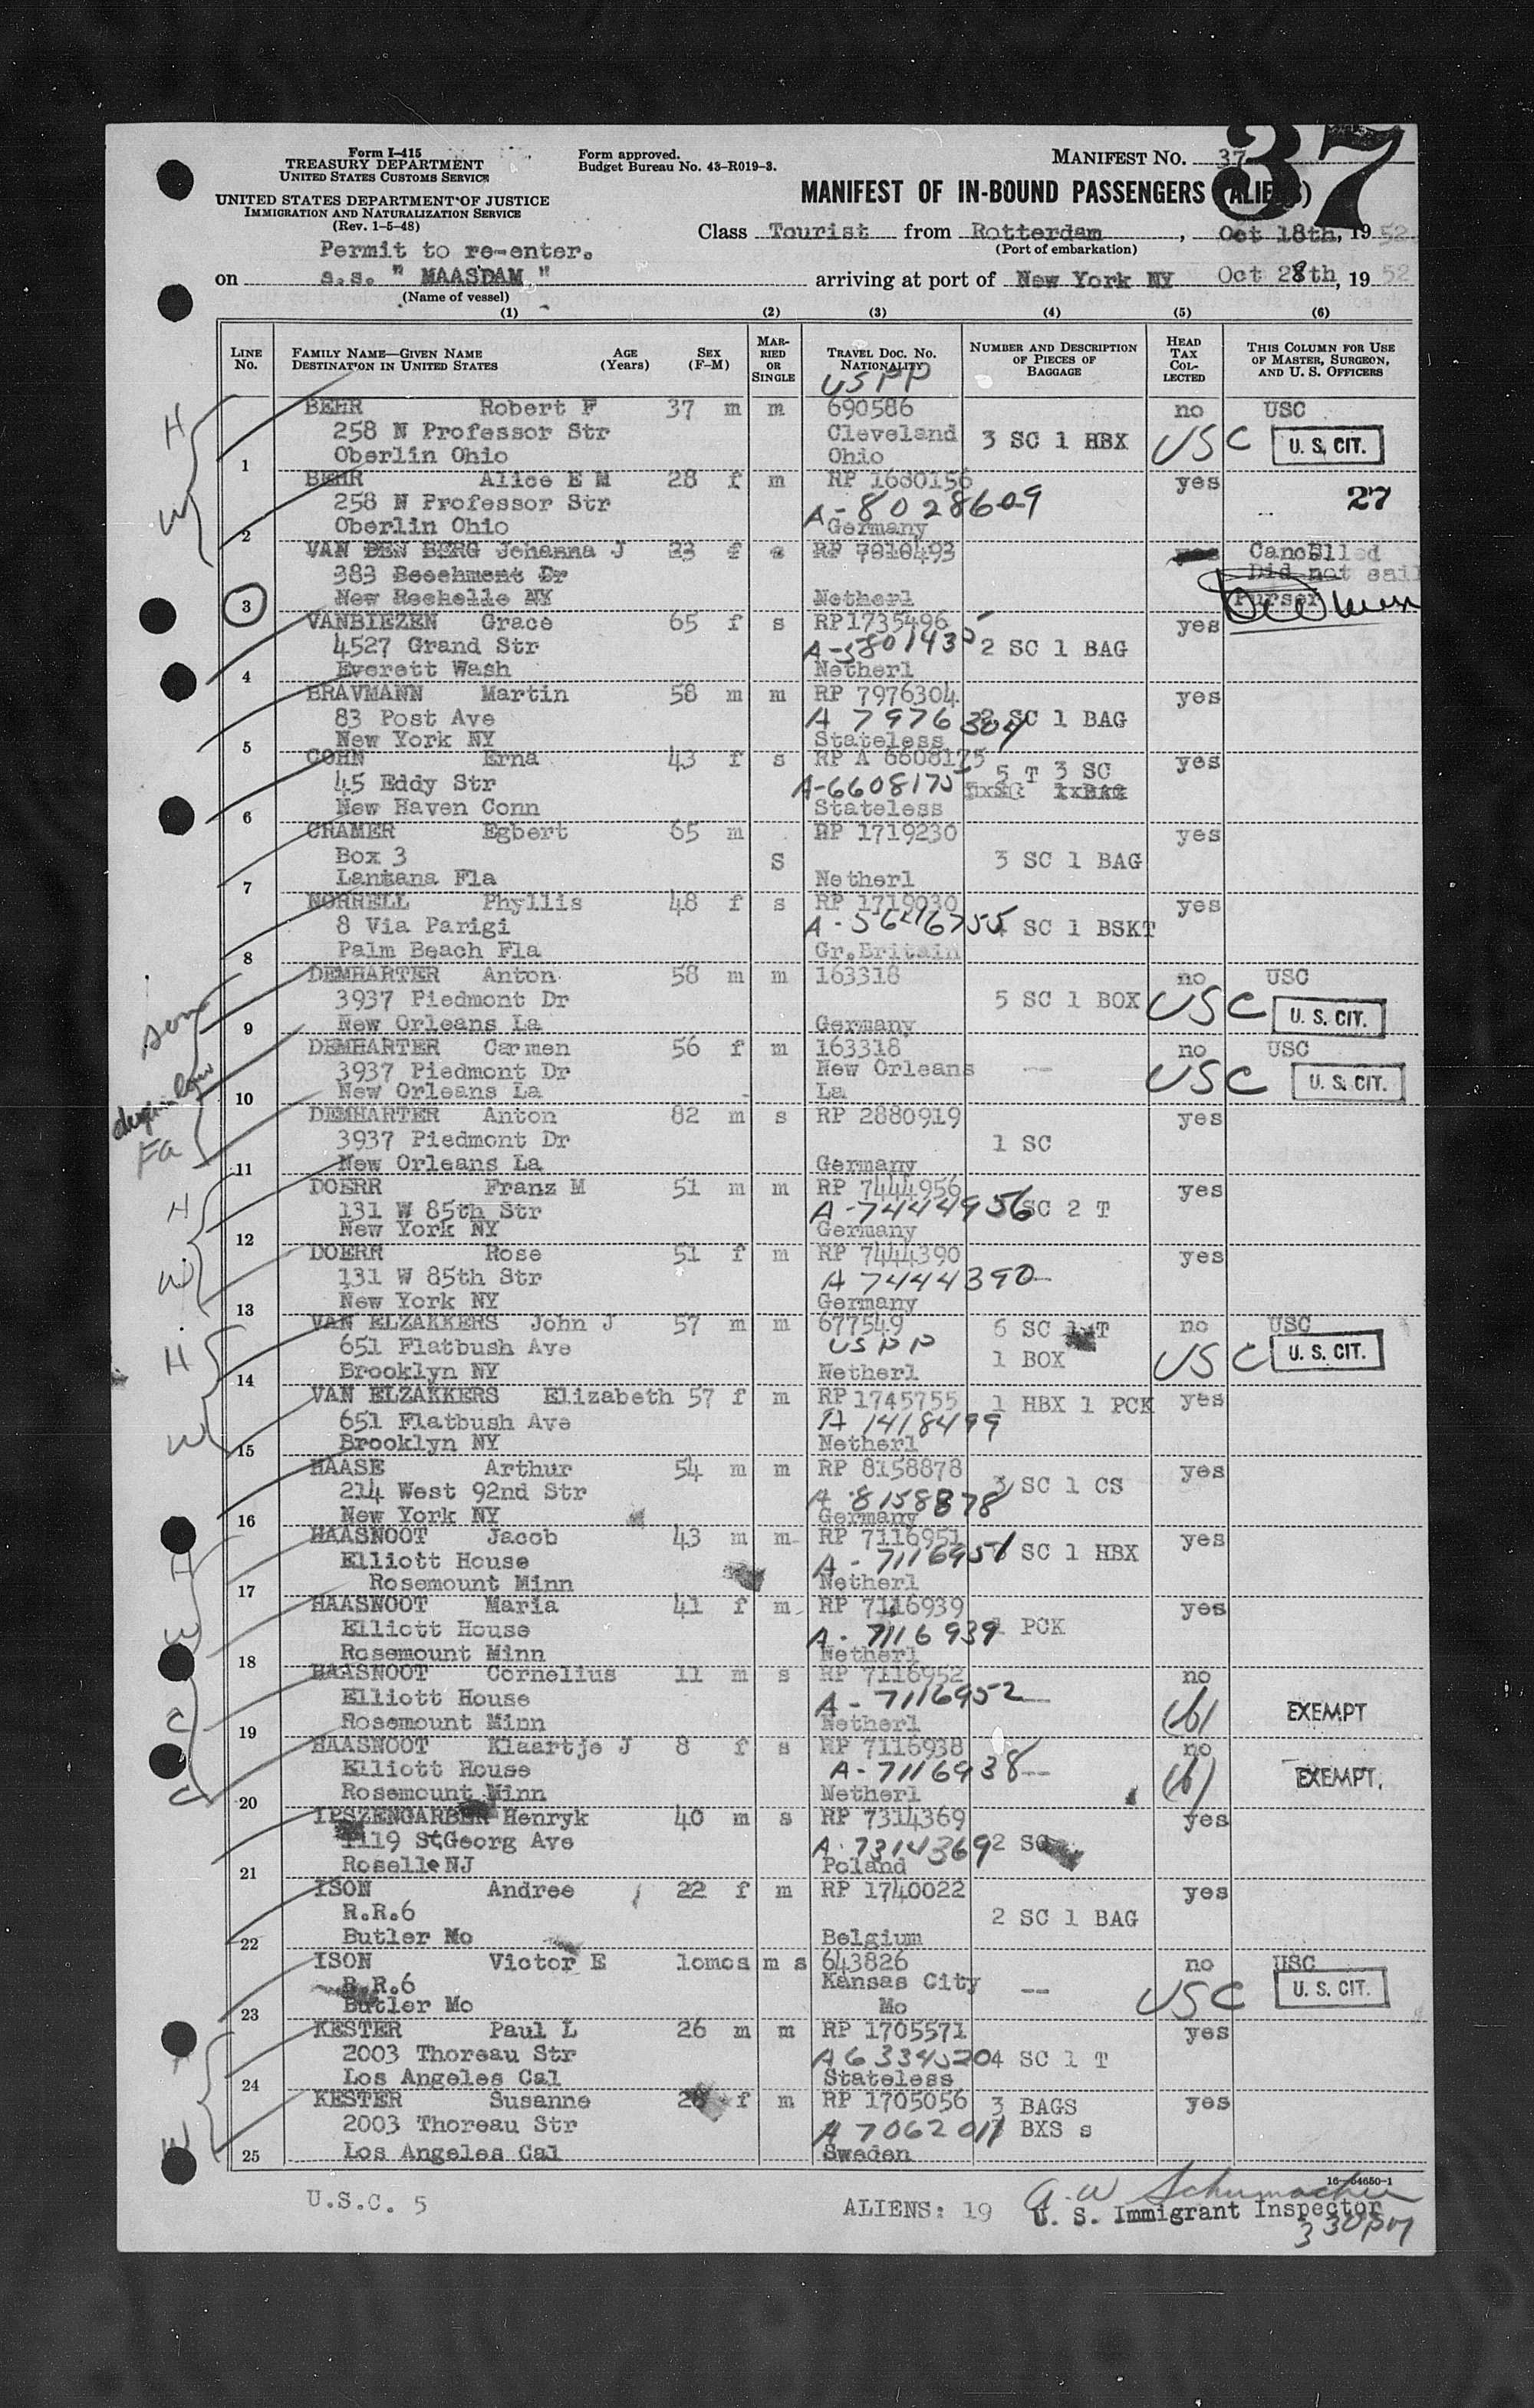 Form I-415
TREASURY DEPARTMENT
UNITED STATES CUSTOMS SERVICE
UNITED STATES DEPARTMENT OF JUSTICE
IMMIGRATION AND NATURALIZATION SERVICE
(Rev. 1-5-48)
Form approved.
Budget Bureau No. 43-R019-3.
MANIFEST NO. 37
37
MANIFEST OF IN-BOUND PASSENGERS (ALIENS)
Class Tourist from Rotterdam, Oct 18th, 1952
(Port of embarkation)
Permit to re-enter.
on s.s. " MAASDAM " arriving at port of New York NY Oct 28th, 1952
(Name of vessel)
(1) (2) (3) (4) (5) (6)
LINE NO. FAMILY NAME—GIVEN NAME DESTINATION IN UNITED STATES AGE (Years) SEX (F–M) MARRIED OR SINGLE TRAVEL DOC. NO. NATIONALITY NUMBER AND DESCRIPTION OF PIECES OF BAGGAGE HEAD TAX COLLECTED THIS COLUMN FOR USE OF MASTER, SURGEON, AND U. S. OFFICERS
USPP
H BEHR Robert F 37 m m 690586 no USC
258 N Professor Str Cleveland 3 SC 1 HBX USC U. S. CIT.
1 Oberlin Ohio Ohio
BEHR Alice E M 28 f m RP 1680156 yes
W 258 N Professor Str A-8028609 27
2 Oberlin Ohio Germany
VAN DEN BERG Johanna J 23 f s RP 7010493 yes Cancelled
383 Beechmont Dr Did not sail
3 New Rochelle NY Netherl Purser
VANBIEZEN Grace 65 f s RP1735496 yes
4527 Grand Str 2 SC 1 BAG
4 Everett Wash Netherl
BRAVMANN Martin 58 m m RP 7976304 yes
83 Post Ave A 7976304 2 SC 1 BAG
5 New York NY Stateless
COHN Erna 43 f s RP A 6608175 yes
45 Eddy Str A-6608175 5 T 3 SC
6 New Haven Conn Stateless
CRAMER Egbert 65 m RP 1719230 yes
Box 3 S 3 SC 1 BAG
7 Lantana Fla Netherl
NORRELL Phyllis 48 f s RP 1719030 yes
8 Via Parigi A-5646755 SC 1 BSKT
8 Palm Beach Fla Gr.Britain
DEMHARTER Anton 58 m m 163318 no USC
son 3937 Piedmont Dr 5 SC 1 BOX USC U. S. CIT.
9 New Orleans La Germany
DEMHARTER Carmen 56 f m 163318 no USC
3937 Piedmont Dr New Orleans -- USC U. S. CIT.
10 New Orleans La La
DEMHARTER Anton 82 m s RP 2880919 yes
Fa 3937 Piedmont Dr 1 SC
11 New Orleans La Germany
DOERR Franz M 51 m m RP 7444956 yes
H 131 W 85th Str A-7444956 SC 2 T
12 New York NY Germany
DOERR Rose 51 f m RP 7444390 yes
W 131 W 85th Str A 7444390
13 New York NY Germany
VAN ELZAKKERS John J 57 m m 677549 6 SC 1 T no USC
H 651 Flatbush Ave USPP 1 BOX USC U. S. CIT.
14 Brooklyn NY Netherl
VAN ELZAKKERS Elizabeth 57 f m RP 1745755 1 HBX 1 PCK yes
W 651 Flatbush Ave A 1418499
15 Brooklyn NY Netherl
HAASE Arthur 54 m m RP 8158878 yes
214 West 92nd Str A-8158878 3 SC 1 CS
16 New York NY Germany
HAASNOOT Jacob 43 m m RP 7116951 yes
H Elliott House A-7116951 SC 1 HBX
17 Rosemount Minn Netherl
HAASNOOT Maria 41 f m RP 7116939 yes
W Elliott House A-7116939 PCK
18 Rosemount Minn Netherl
HAASNOOT Cornelius 11 m s RP 7116952 no
C Elliott House A-7116952 (b) EXEMPT
19 Rosemount Minn Netherl
HAASNOOT Klaartje J 8 f s RP 7116938 no
C Elliott House A-7116938 (b) EXEMPT.
20 Rosemount Minn Netherl
IPSZENGARBER Henryk 40 m s RP 7314369 yes
1119 St Georg Ave A-7314369 2 SC
21 Roselle NJ Poland
ISON Andree 22 f m RP 1740022 yes
R.R.6 2 SC 1 BAG
22 Butler Mo Belgium
ISON Victor E 10mos m s 643826 no USC
R.R.6 Kansas City -- USC U. S. CIT.
23 Butler Mo Mo
KESTER Paul L 26 m m RP 1705571 yes
2003 Thoreau Str A6334520 4 SC 1 T
24 Los Angeles Cal Stateless
KESTER Susanne 28 f m RP 1705056 3 BAGS yes
W 2003 Thoreau Str A 7062011 BXS s
25 Los Angeles Cal Sweden
16—54650-1
U.S.C. 5 ALIENS: 19 A. W Schumacher
U. S. Immigrant Inspector
330pm